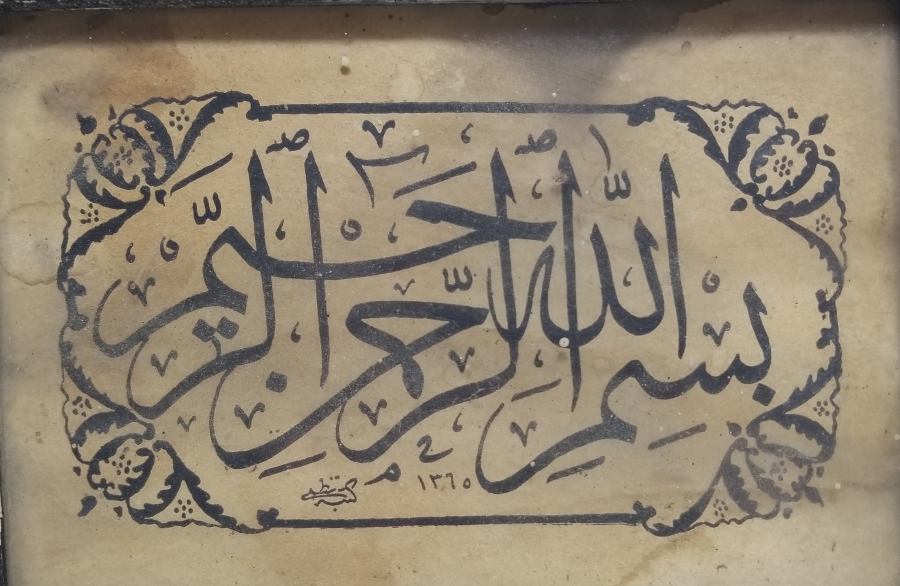 بسم الله الرحمن الرحيم
١٣٦٥